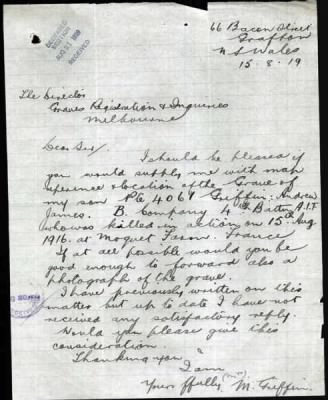 66 Bacon Street
Grafton
N S Wales
15. 8. 19
RECEIVED
The Director
Graves Registration & Inquiries
Melbourne
Dear Sir/
I should be pleased if
you would supply me with map
reference & location of the Grave of
my son Pte 4067 Griffin. Andrew
James. B. Company 4th Battn A.I.F
who was killed in action on 15th Aug
1916. at Moquet Farm. France
If at all possible would you be
good enough to forward also a
photograph of the grave.
I have previously written on this
matter but up to date I have not
received any satisfactory reply.
Would you please give this
consideration.
Thanking you
I am
Yours ffully (Mrs) M. Griffin.